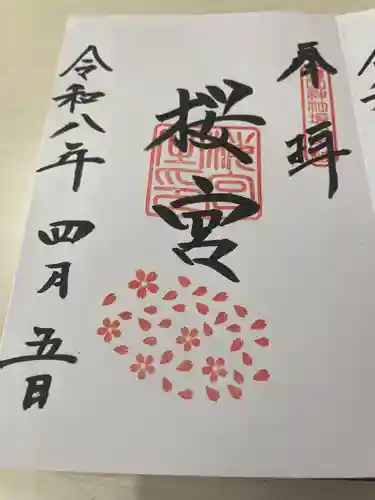 奉拝
桜宮
令和八年
四月五日